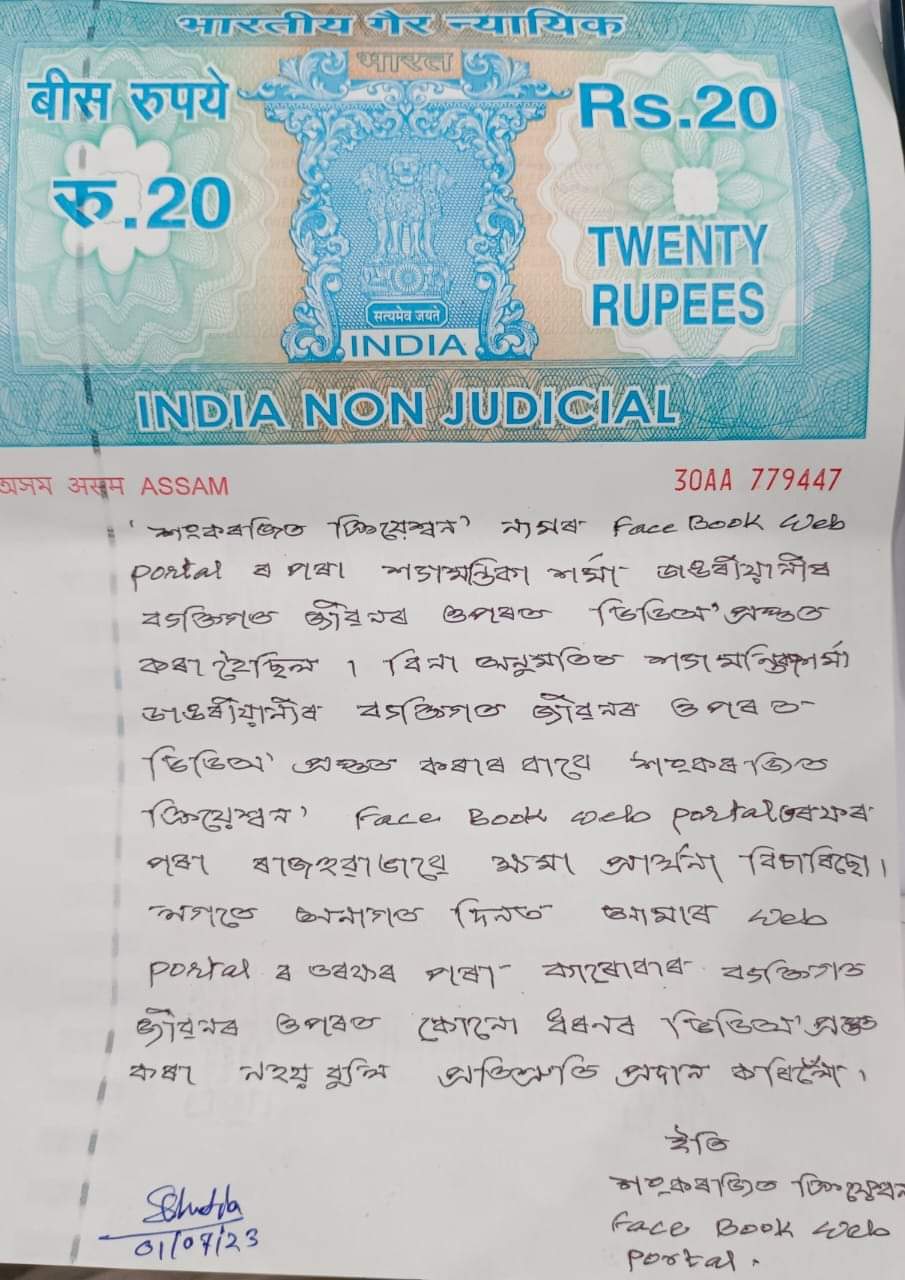 भारतीय गैर न्यायिक
भारत
बीस रुपये
Rs.20
रु.20
TWENTY
RUPEES
सत्यमेव जयते
INDIA
INDIA NON JUDICIAL
অসম असम ASSAM
30AA 779447
'শংকৰজিত ক্ৰিয়েশ্বন' নামৰ Face Book Web
portal ৰ পৰা শ্যামন্তিকা শৰ্মা ডাঙৰীয়ানীৰ
ব্যক্তিগত জীৱনৰ ওপৰত ভিডিঅ' প্ৰস্তুত
কৰা হৈছিল । বিনা অনুমতিত শ্যামন্তিকা শৰ্মা
ডাঙৰীয়ানীৰ ব্যক্তিগত জীৱনৰ ওপৰত
ভিডিঅ' প্ৰস্তুত কৰাৰ বাবে শংকৰজিত
ক্ৰিয়েশ্বন' Face Book web portal তৰফৰ
পৰা ৰাজহুৱাভাৱে ক্ষমা প্ৰাৰ্থনা বিচাৰিছো ।
লগতে অনাগত দিনত আমাৰ web
portal ৰ তৰফৰ পৰা কাৰোবাৰ ব্যক্তিগত
জীৱনৰ ওপৰত কোনো ধৰনৰ ভিডিঅ' প্ৰস্তুত
কৰা নহয় বুলি প্ৰতিশ্ৰুতি প্ৰদান কৰিলোঁ ।
ইতি
শংকৰজিত ক্ৰিয়েশ্বন
Face Book web
portal .
01/07/23